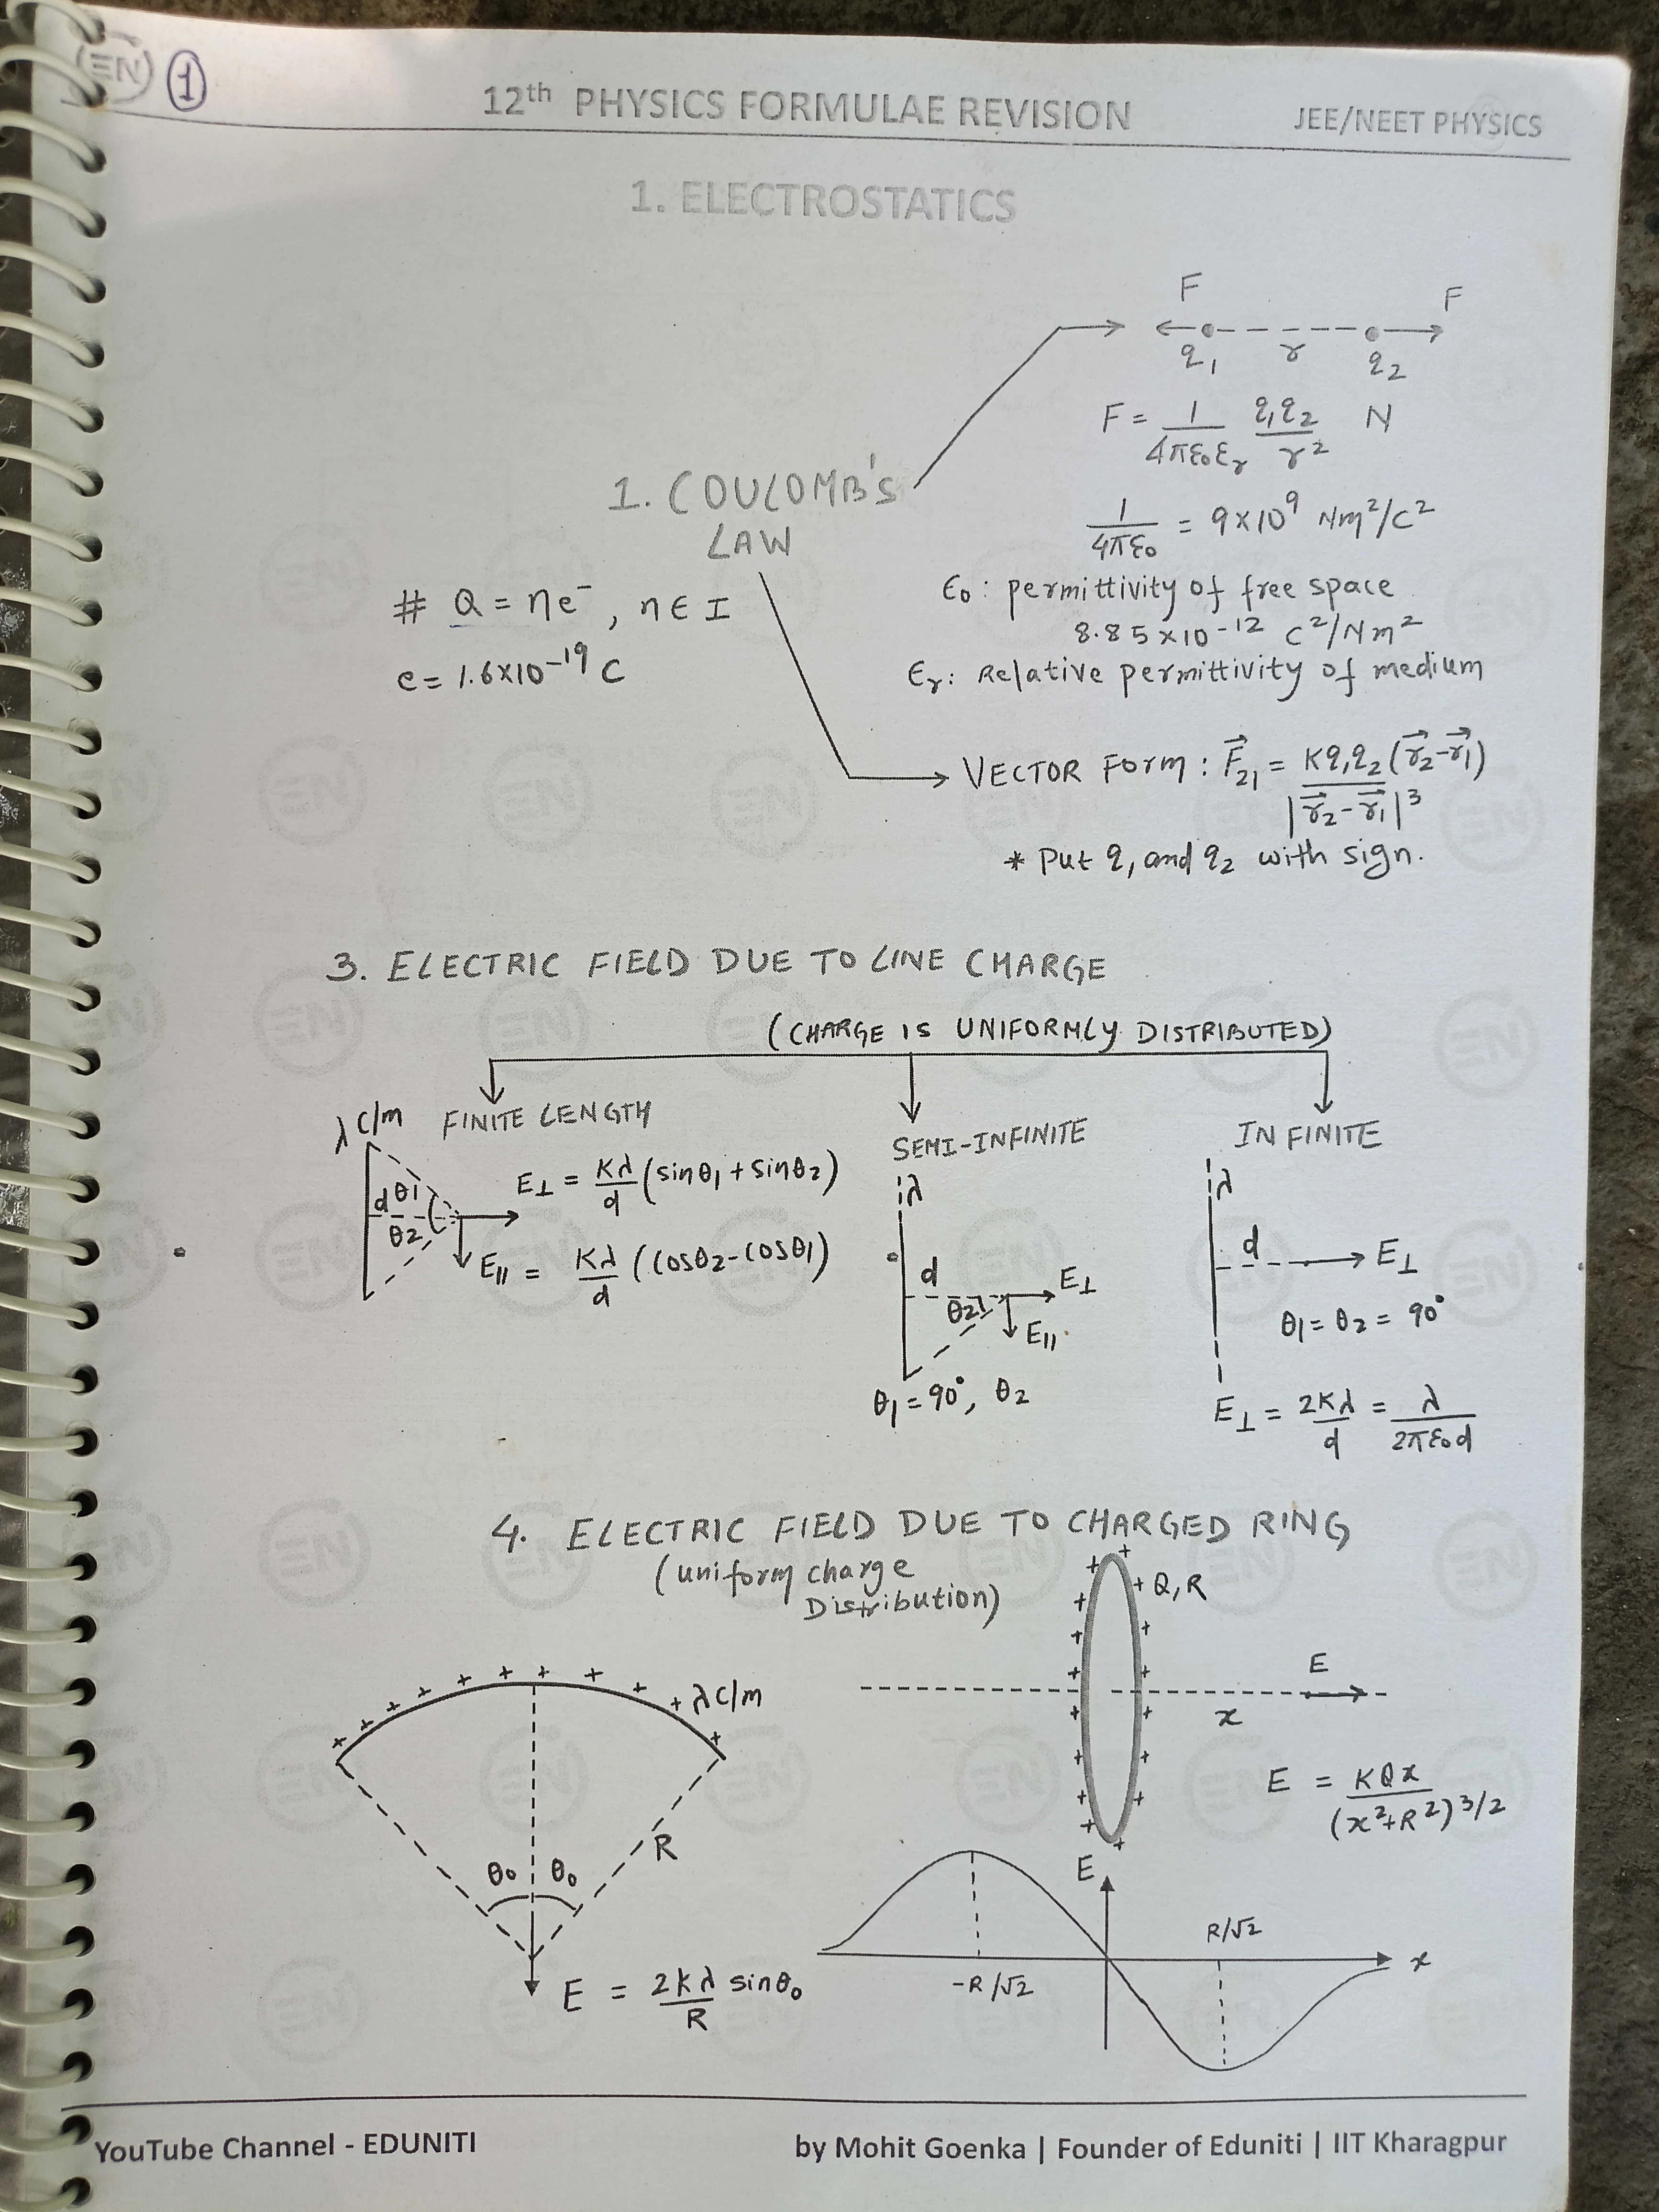 EN 1
12th PHYSICS FORMULAE REVISION
JEE/NEET PHYSICS
1. ELECTROSTATICS
F F
q1 r q2
F = 1/4πε0εr q1q2/r² N
1. COULOMB'S
LAW
1/4πε0 = 9×10⁹ Nm²/C²
# Q = ne⁻, n∈I
e = 1.6×10⁻¹⁹ C
ε0: permittivity of free space
8.85×10⁻¹² C²/Nm²
εr: Relative permittivity of medium
VECTOR Form: F⃗21 = Kq1q2(r⃗2-r⃗1)/|r⃗2-r⃗1|³
* Put q1 and q2 with sign.
3. ELECTRIC FIELD DUE TO LINE CHARGE
(CHARGE IS UNIFORMLY DISTRIBUTED)
λ C/m FINITE LENGTH
d θ1
θ2
E⊥ = Kλ/d (sinθ1 + sinθ2)
E|| = Kλ/d (cosθ2-cosθ1)
SEMI-INFINITE
λ
d
θ2
E⊥
E||
θ1 = 90°, θ2
INFINITE
λ
d E⊥
θ1 = θ2 = 90°
E⊥ = 2Kλ/d = λ/2πε0d
4. ELECTRIC FIELD DUE TO CHARGED RING
(uniform charge
Distribution)
+ + + + + + + + + + λ C/m
R
θ0 θ0
E = 2Kλ/R sinθ0
Q, R
E
x
E = KQx/(x²+R²)^3/2
E
R/√2
-R/√2
x
YouTube Channel - EDUNITI
by Mohit Goenka | Founder of Eduniti | IIT Kharagpur